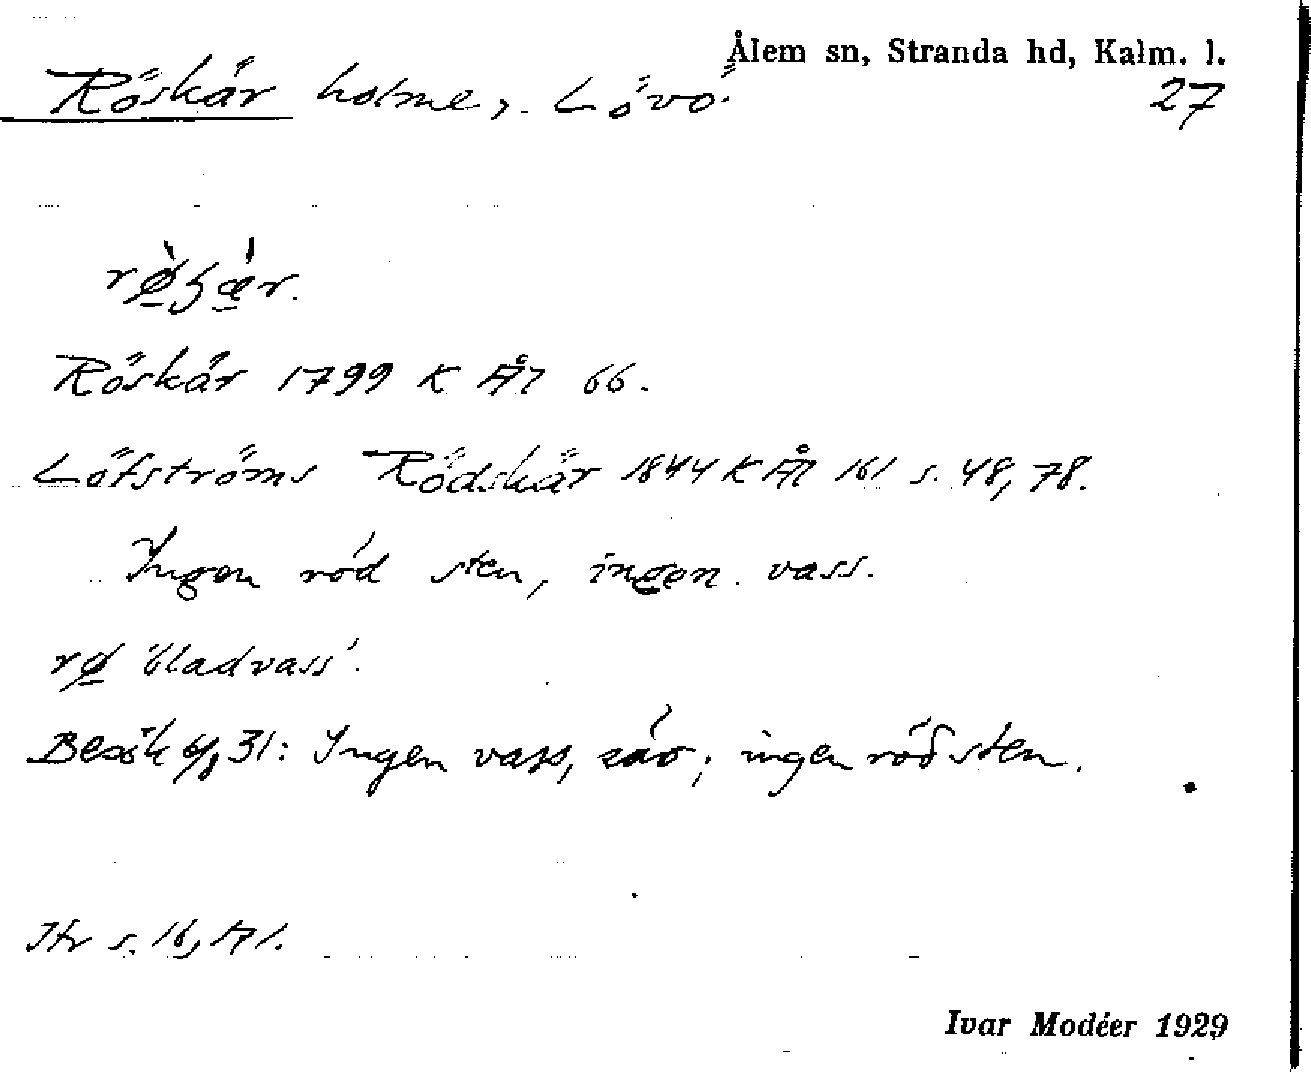 Ålem sn, Stranda hd, Kalm. l.
Röskär holme, Lövö. 27
Röskär 1799 K Ål 66.
Löfströms Rödskär 1844 K Ål 161 s. 48, 78.
Ingen röd sten, ingen vass.
rø 'bladvass'.
Besök 31: Ingen vass, ; ingen röd sten.
Jfr s. 16, 171.
Ivar Modéer 1929